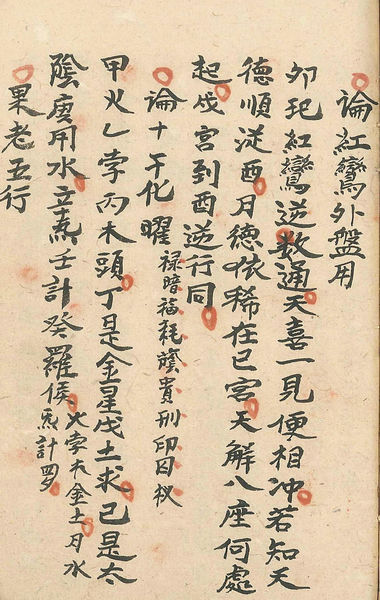 論紅鸞外盤用
夘玘紅鸞逆数通天喜一見便相冲若知天
德順從酉月德依稀在巳宮天解八座何處
起戌宮到酉逆行同
論十干化曜禄暗福耗蔭貴刑印囚权
甲火乙孛丙木頭丁是金星戊土求己是太
陰庚用水辛炁壬計癸羅侯火孛木金土月水炁計罗
果老五行